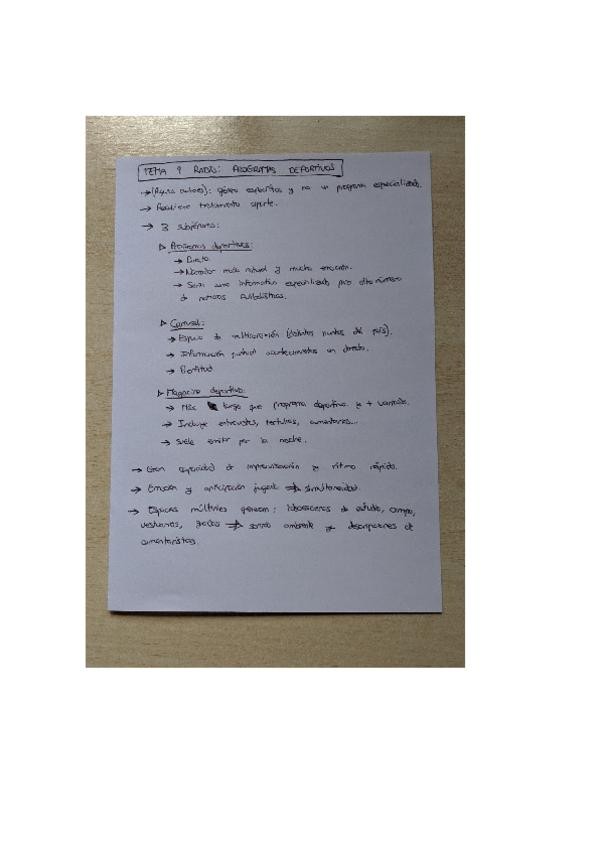 TEMA 9 RADIO: PROGRAMAS DEPORTIVOS
→ (Algunos autores): género específico y no un programa especializado.
→ Requiere tratamiento aparte.
→ 3 subgéneros:
▷ Programas deportivos:
→ Directo
→ Narrador modo natural y mucha emoción.
→ Serían como informativo especializado pero alto número
de noticias futbolísticas.
▷ Carrusel:
→ Espacio de multiconexión (distintos puntos del país).
→ Información puntual acontecimientos en directo.
→ Prontitud
▷ Magacine deportivo:
→ Más largo que programa deportivo y + variado.
→ Incluye entrevistas, tertulias, comentarios...
→ Suele emitir por la noche.
→ Gran capacidad de improvisación y ritmo rápido.
→ Emoción y anticipación jugada → simultaneidad.
→ Espacios múltiples generan: de estudio, campo,
vestuarios, gradas → sonido ambiente y descripciones de
comentaristas.